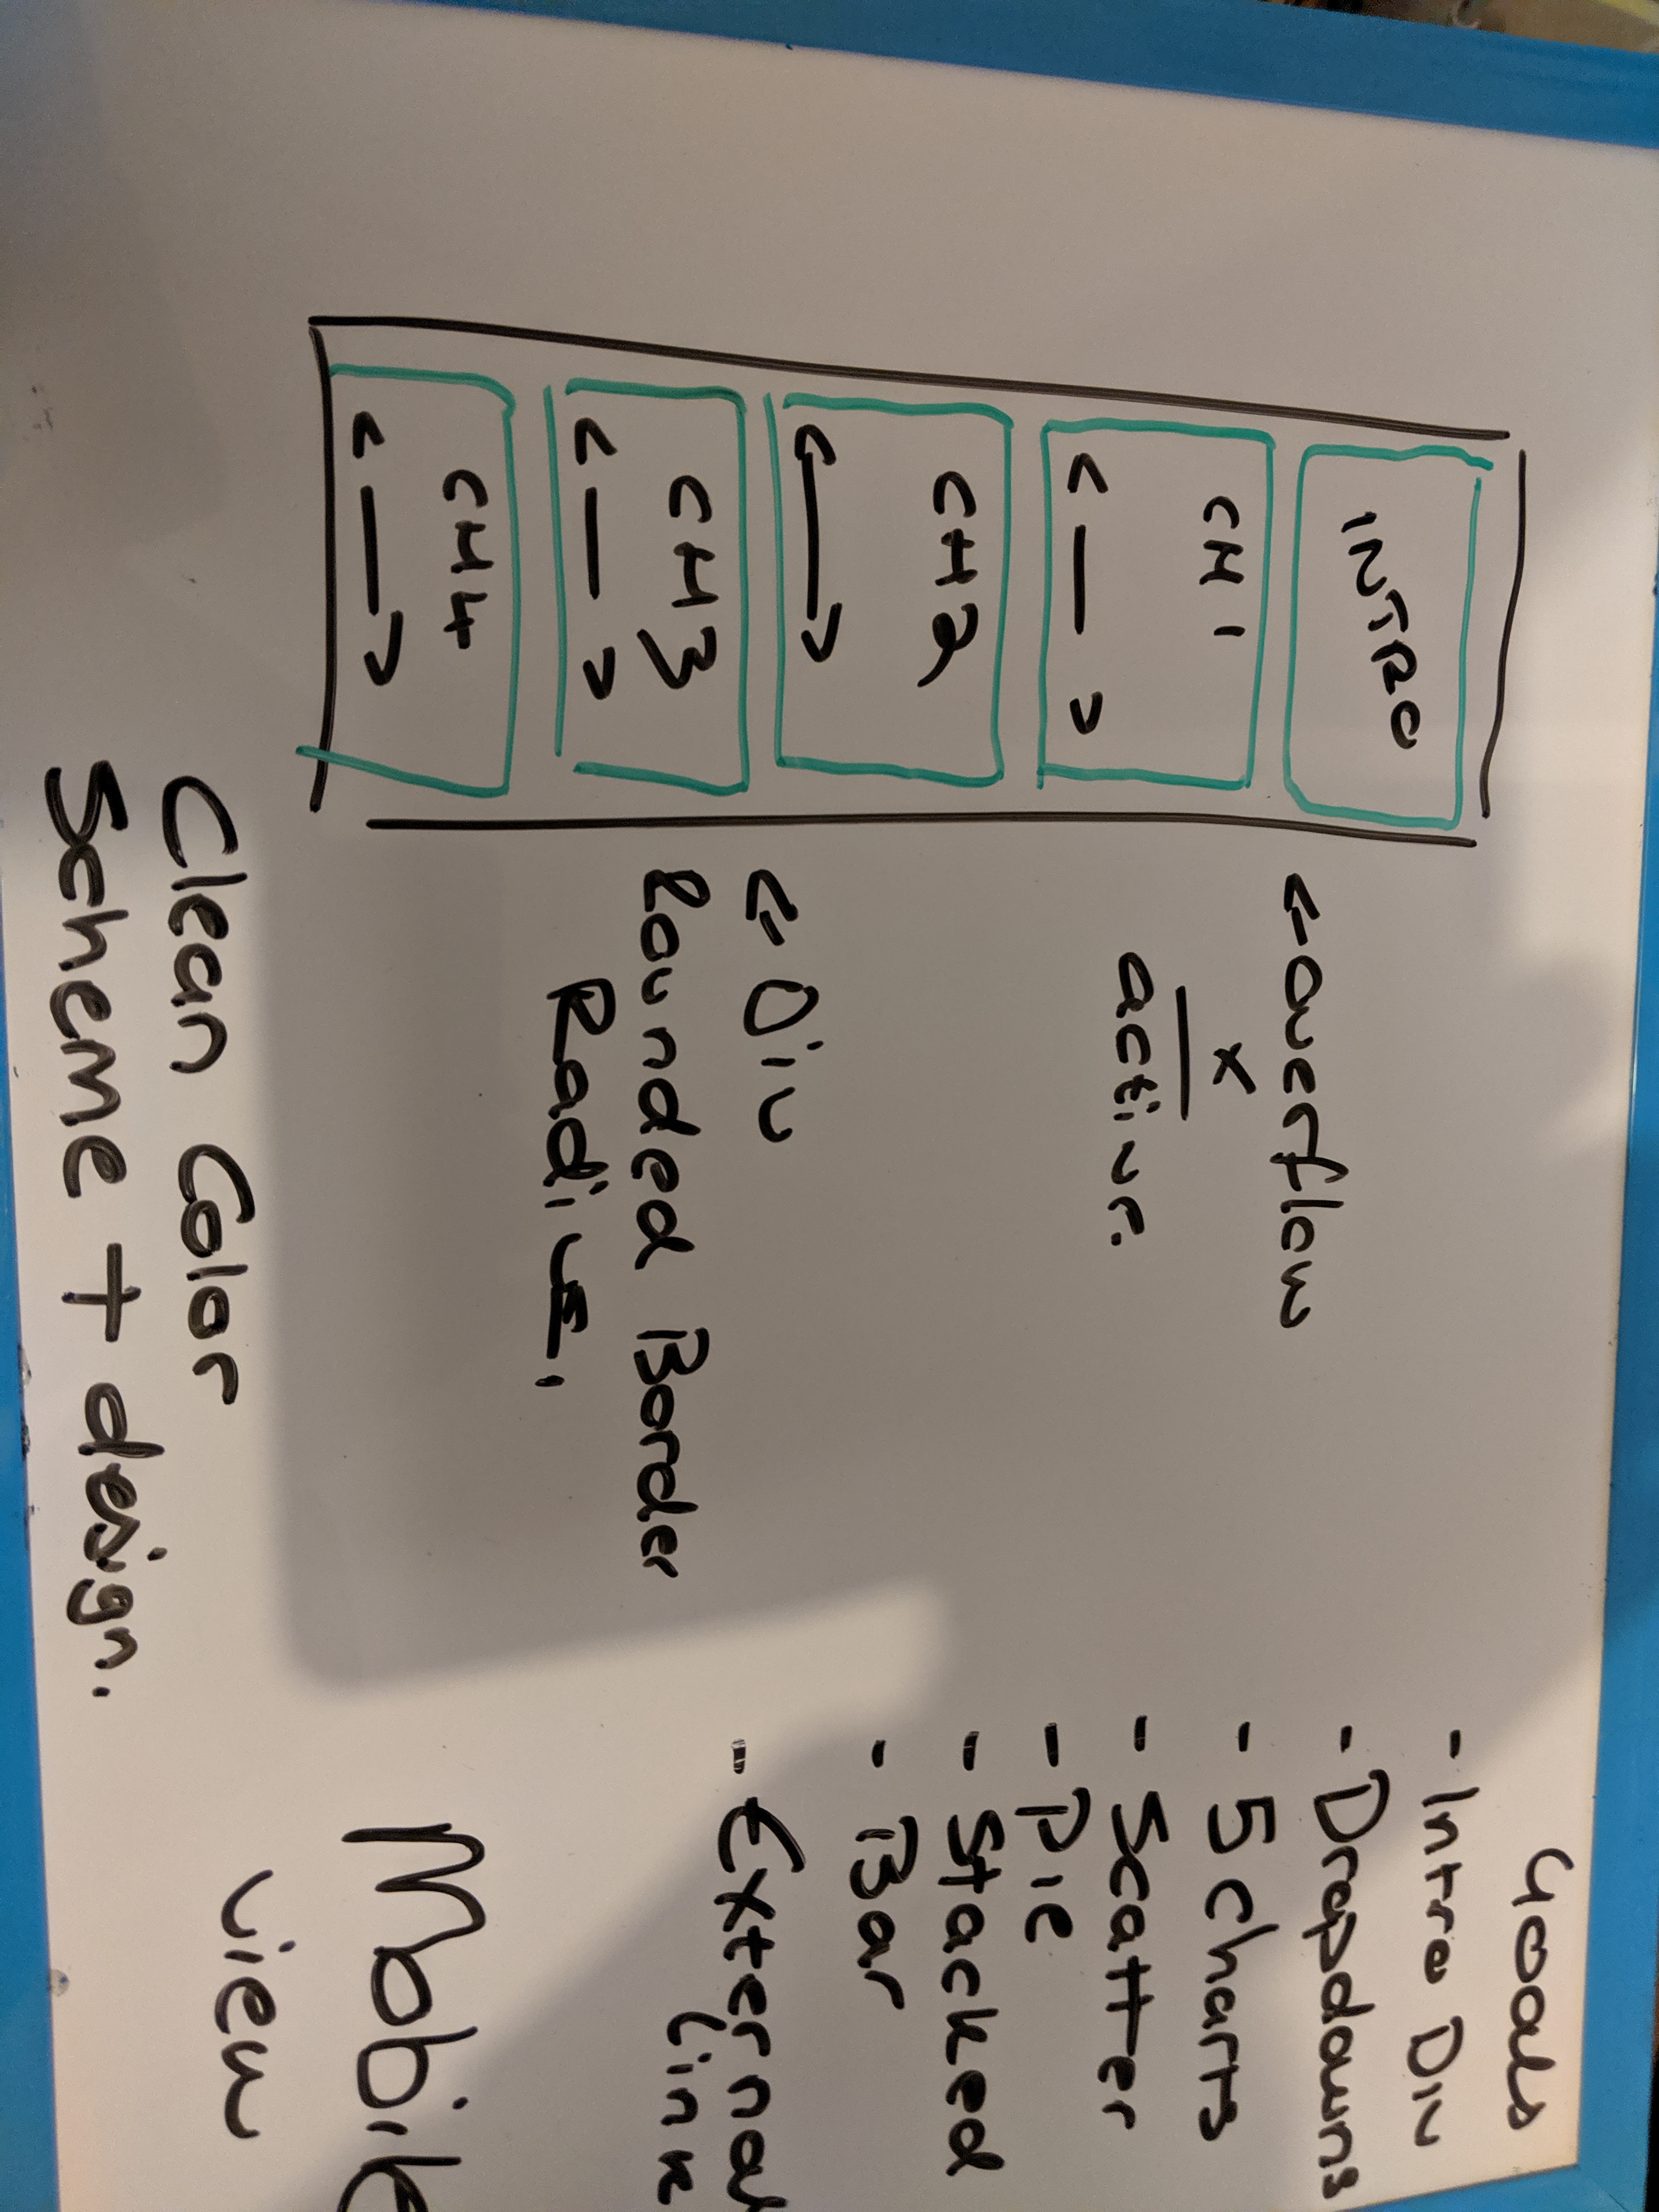 INTRO
CH 1
< — >
CH2
<—>
CH3
< — >
CH4
< — >
<- overflow
x
active.
<- Div
Rounded Border
Radius.
Clean Color
Scheme + design.
Goals
- Intro Div
- Dropdowns
- 5 Charts
- Scatter
- Pie
- Stacked
- Bar
- External
Link
Mobile
View